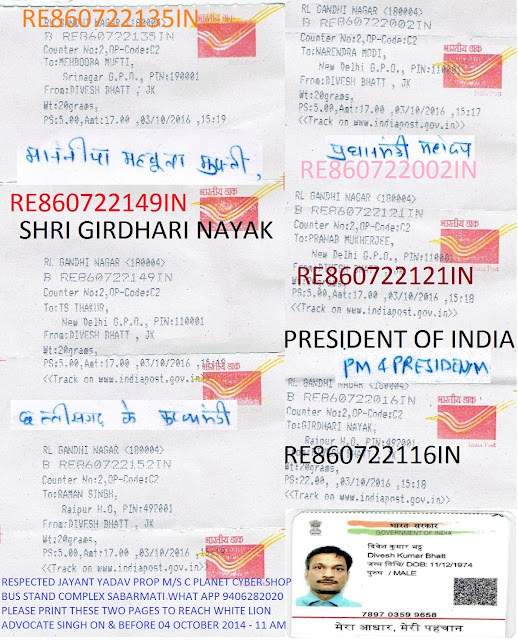 RE860722135IN
RL GANDHI NAGAR <180004>
B RE860722135IN
Counter No:2,OP-Code:C2
To:MEHBOOBA MUFTI,
Srinagar G.P.O., PIN:190001
From:DIVESH BHATT , JK
Wt:20grams,
PS:5.00,Amt:17.00 ,03/10/2016 ,15:19
<<Track on www.indiapost.gov.in>>
भारतीय डाक
RE860722149IN
SHRI GIRDHARI NAYAK
RL GANDHI NAGAR <180004>
B RE860722149IN
Counter No:2,OP-Code:C2
To:TS THAKUR,
New Delhi G.P.O., PIN:110001
From:DIVESH BHATT , JK
Wt:20grams,
PS:5.00,Amt:17.00 ,03/10/2016 ,15:19
<<Track on www.indiapost.gov.in>>
भारतीय डाक
छत्तीसगढ़ के
RL GANDHI NAGAR <180004>
B RE860722152IN
Counter No:2,OP-Code:C2
To:RAMAN SINGH,
Raipur H.O, PIN:492001
From:DIVESH BHATT , JK
Wt:20grams,
PS:5.00,Amt:17.00 ,03/10/2016
<<Track on www.indiapost.gov.in>>
भारतीय डाक
RESPECTED JAYANT YADAV PROP M/S C PLANET CYBER SHOP
BUS STAND COMPLEX SABARMATI.WHAT APP 9406282020
PLEASE PRINT THESE TWO PAGES TO REACH WHITE LION
ADVOCATE SINGH ON & BEFORE 04 OCTOBER 2014 - 11 AM
RL GANDHI NAGAR <180004>
B RE860722002IN
Counter No:2,OP-Code:C2
To:NARENDRA MODI,
New Delhi G.P.O., PIN:110001
From:DIVESH BHATT , JK
Wt:20grams,
PS:5.00,Amt:17.00 ,03/10/2016 ,15:17
<<Track on www.indiapost.gov.in>>
भारतीय डाक
प्रधानमंत्री महोदय
RE860722002IN
RL GANDHI NAGAR <180004>
B RE860722121IN
Counter No:2,OP-Code:C2
To:PRANAB MUKHERJEE,
New Delhi G.P.O., PIN:110001
RE860722121IN
PS:5.00,Amt:17.00 ,03/10/2016 ,15:18
<<Track on www.indiapost.gov.in>>
भारतीय डाक
PRESIDENT OF INDIA
PM & PRESIDENT
RL GANDHI NAGAR
B RE860722016IN
Counter No:2,OP-Code:C2
To:GIRDHARI NAYAK,
Raipur H.O, PIN:492001
RE860722116IN
Wt:20grams,
PS:22.00, ,03/10/2016 ,15:18
<<Track on www.indiapost.gov.in>>
भारतीय डाक
भारत सरकार
GOVERNMENT OF INDIA
दिवेश कुमार भट्ट
Divesh Kumar Bhatt
जन्म तिथि/ DOB: 11/12/1974
पुरुष / MALE
7897 0359 9658
मेरा आधार, मेरी पहचान